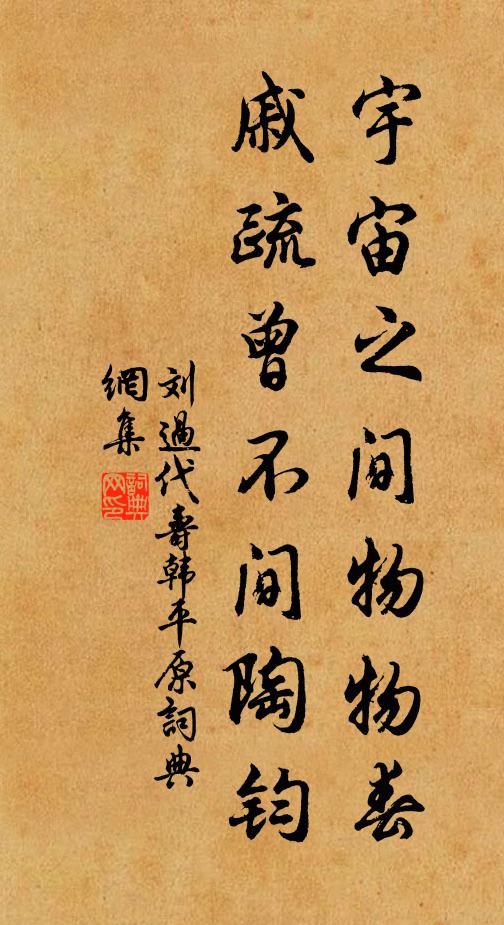 宇宙之间物物春
戚疏曾不间陶钧
刘過代寿韩平原詞典
網集
詞典
网印